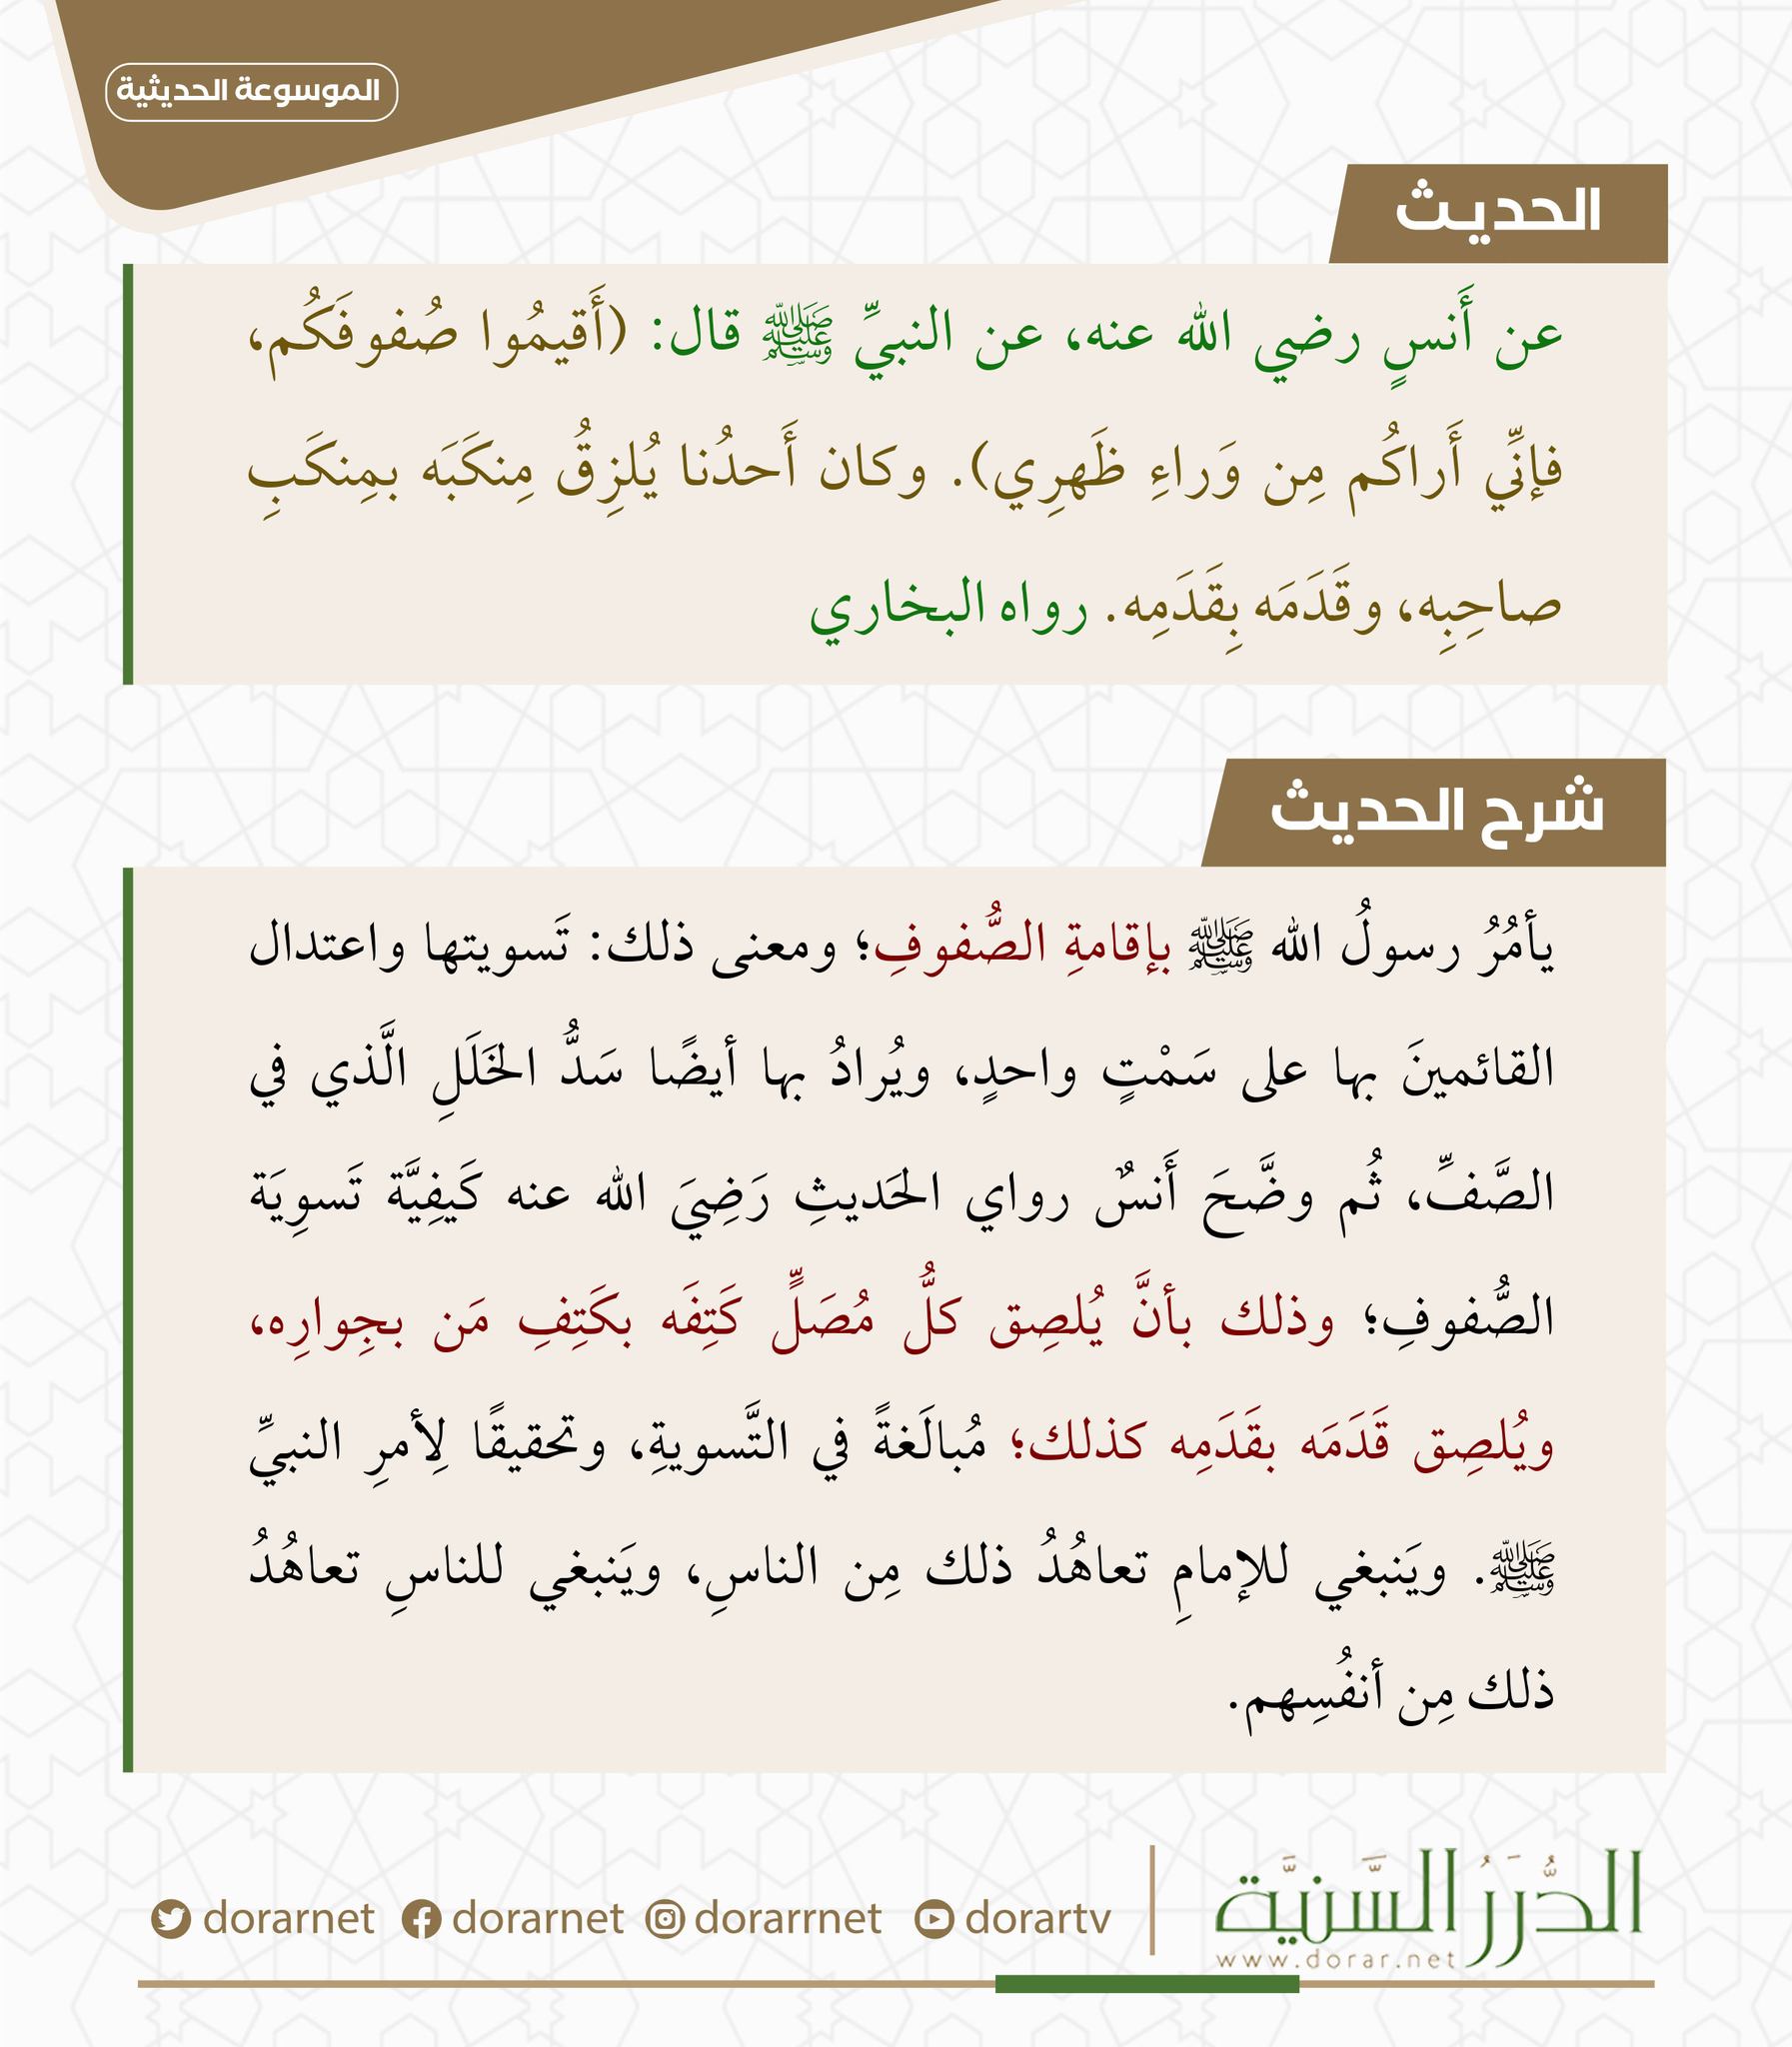 الموسوعة الحديثية
الحديث
عن أَنسٍ رضي الله عنه، عن النبيِّ ﷺ قال: (أَقيمُوا صُفوفَكُم،
فإنِّي أَراكُم مِن وَراءِ ظَهرِي). وكان أَحدُنا يُلزِقُ مِنكَبَه بمِنكَبِ
صاحِبِه، وقَدَمَه بِقَدَمِه. رواه البخاري
شرح الحديث
يأمُرُ رسولُ الله ﷺ بإقامةِ الصُّفوفِ؛ ومعنى ذلك: تَسويتها واعتدال
القائمينَ بها على سَمْتٍ واحدٍ، ويُرادُ بها أيضًا سَدُّ الخَلَلِ الَّذي في
الصَّفِّ، ثُم وضَّحَ أَنسٌ رواي الحَديثِ رَضِيَ الله عنه كَيفِيَّة تَسوِيَة
الصُّفوفِ؛ وذلك بأنَّ يُلصِق كلُّ مُصَلٍّ كَتِفَه بكَتِفِ مَن بجِوارِه،
ويُلصِق قَدَمَه بقَدَمِه كذلك؛ مُبالَغةً في التَّسويةِ، وتحقيقًا لِأمرِ النبيِّ
ﷺ. ويَنبغي للإمامِ تعاهُدُ ذلك مِن الناسِ، ويَنبغي للناسِ تعاهُدُ
ذلك مِن أنفُسِهم.
الدُّرَرُ السَّنيَّة
www.dorar.net
dorarnet dorarnet dorarrnet dorartv